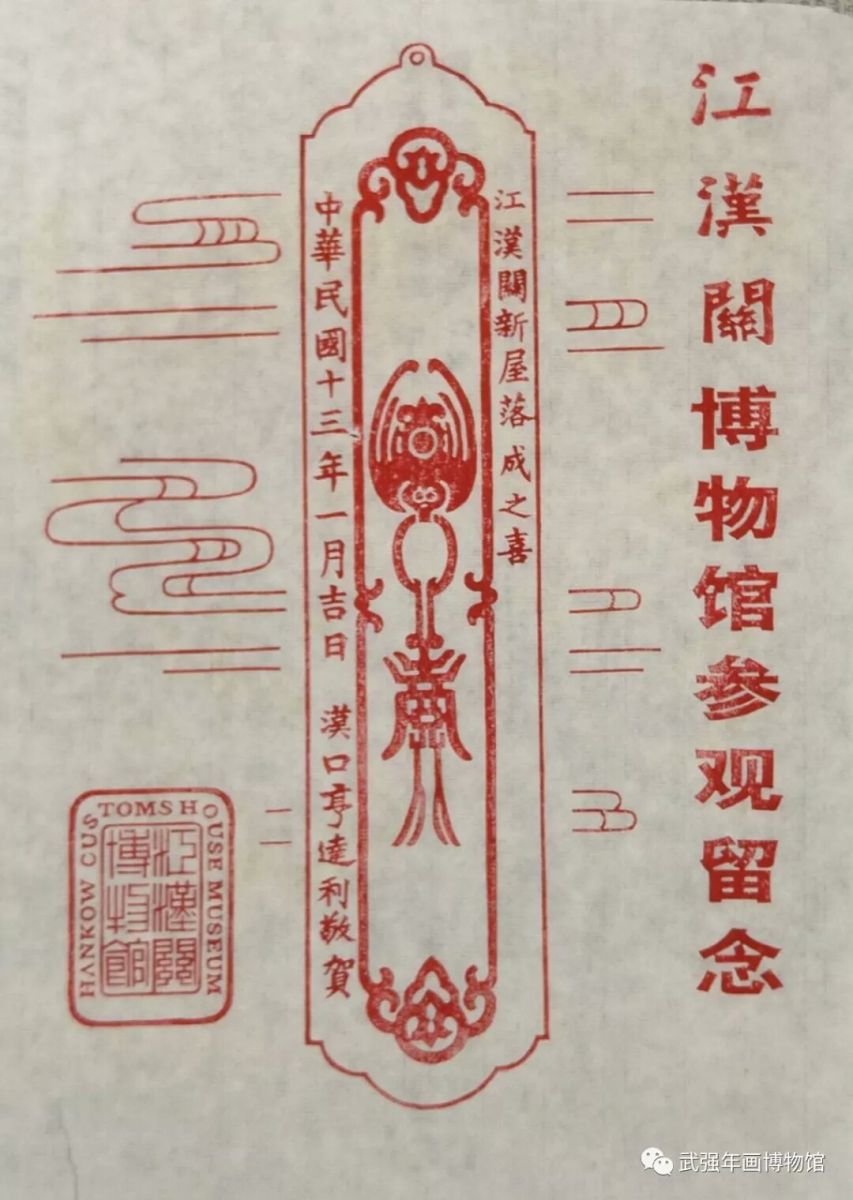 江漢關博物馆参观留念
江漢關新屋落成之喜
中華民國十三年一月吉日 漢口亨達利敬賀
HANKOW CUSTOMS HOUSE MUSEUM
江漢關
博物館
武强年画博物馆